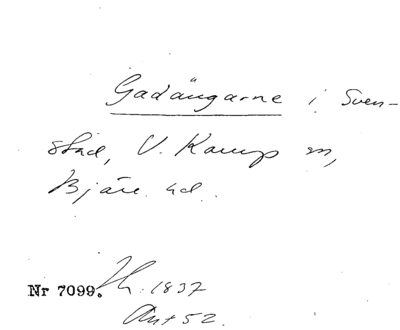 Gadängarne i Sven-
stad, V. Karup sn,
Bjäre hd.
Nr 7099. Th. 1837
Ant 52.